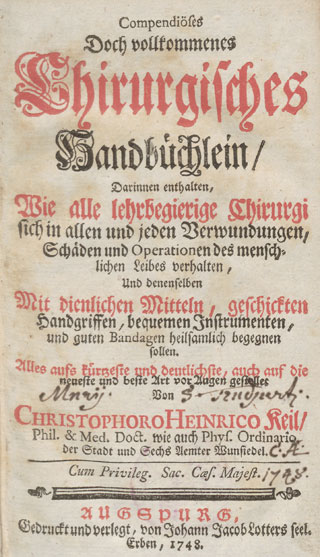 Compendiöses
Doch vollkommenes
Chirurgisches
Handbüchlein/
Darinnen enthalten,
Wie alle lehrbegierige Chirurgi
sich in allen und jeden Verwundungen,
Schäden und Operationen des mensch-
lichen Leibes verhalten,
Und denenselben
Mit dienlichen Mitteln, geschickten
Handgriffen, bequemen Instrumenten,
und guten Bandagen heilsamlich begegnen
sollen.
Alles aufs kürtzeste und deutlichste, auch auf die
neueste und beste Art vor Augen gestellet
Von
CHRISTOPHORO HEINRICO Keil/
Phil. & Med. Doct. wie auch Phys. Ordinario
der Stadt und Sechs Aemter Wunsiedel.
Cum Privileg. Sac. Cæs. Majest. 1748
AUGSPURG,
Gedruckt und verlegt, von Johann Jacob Lotters seel.
Erben, 1748.